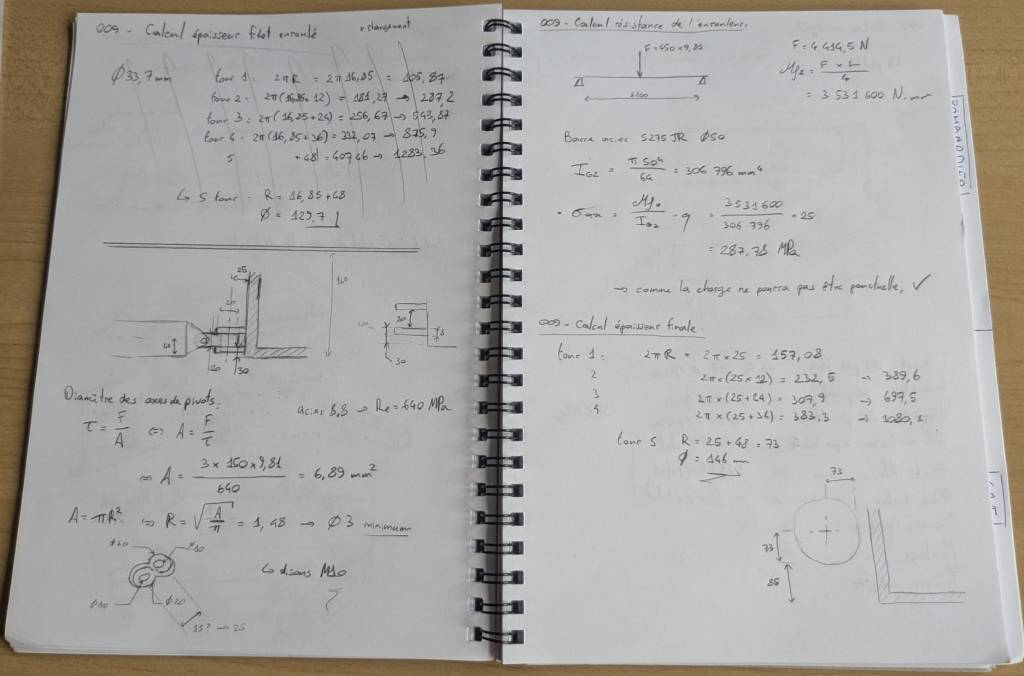 009 - Calcul épaisseur filet enroulé
× changement
Ø 33,7 mm
tour 1 : 2πR = 2π16,85 = 105,87
tour 2 : 2π(16,85+12) = 181,27 → 287,2
tour 3 : 2π(16,85+24) = 256,67 → 543,87
tour 4 : 2π(16,85+36) = 332,07 → 875,9
5 +48 = 407,46 → 1283,36
↳ 5 tour : R = 16,85+48
Ø = 129,7
25
140
40
20
30
20
8
30
Diamètre des axes de pivots :
acier 8,8 → Re = 640 MPa
τ = F/A ⇔ A = F/τ
⇔ A = (3 × 150 × 9,81)/640 = 6,89 mm²
A = πR² ⇔ R = √(A/π) = 1,48 → Ø 3 minimum
↳ disons M10
Ø20
Ø10
Ø10
Ø20
15? → 25
009 - Calcul résistance de l'enrouleur.
F = 450 × 9,81
3200
F = 4 414,5 N
Mfz = (F × L)/4
= 3 531 600 N.mm
Barre acier S275JR Ø50
IGz = π50⁴/64 = 306 796 mm⁴
• σmax = Mfz/IGz · y = 3531600/306 796 × 25
= 287,78 MPa
→ comme la charge ne pourra pas être ponctuelle, ✓
009 - Calcul épaisseur finale.
tour 1 : 2πR = 2π×25 = 157,08
2 2π×(25+12) = 232,5 → 389,6
3 2π×(25+24) = 307,9 → 697,5
4 2π×(25+36) = 383,3 → 1080,8
tour 5 R = 25+48 = 73
Ø = 146 mm
73
73
85